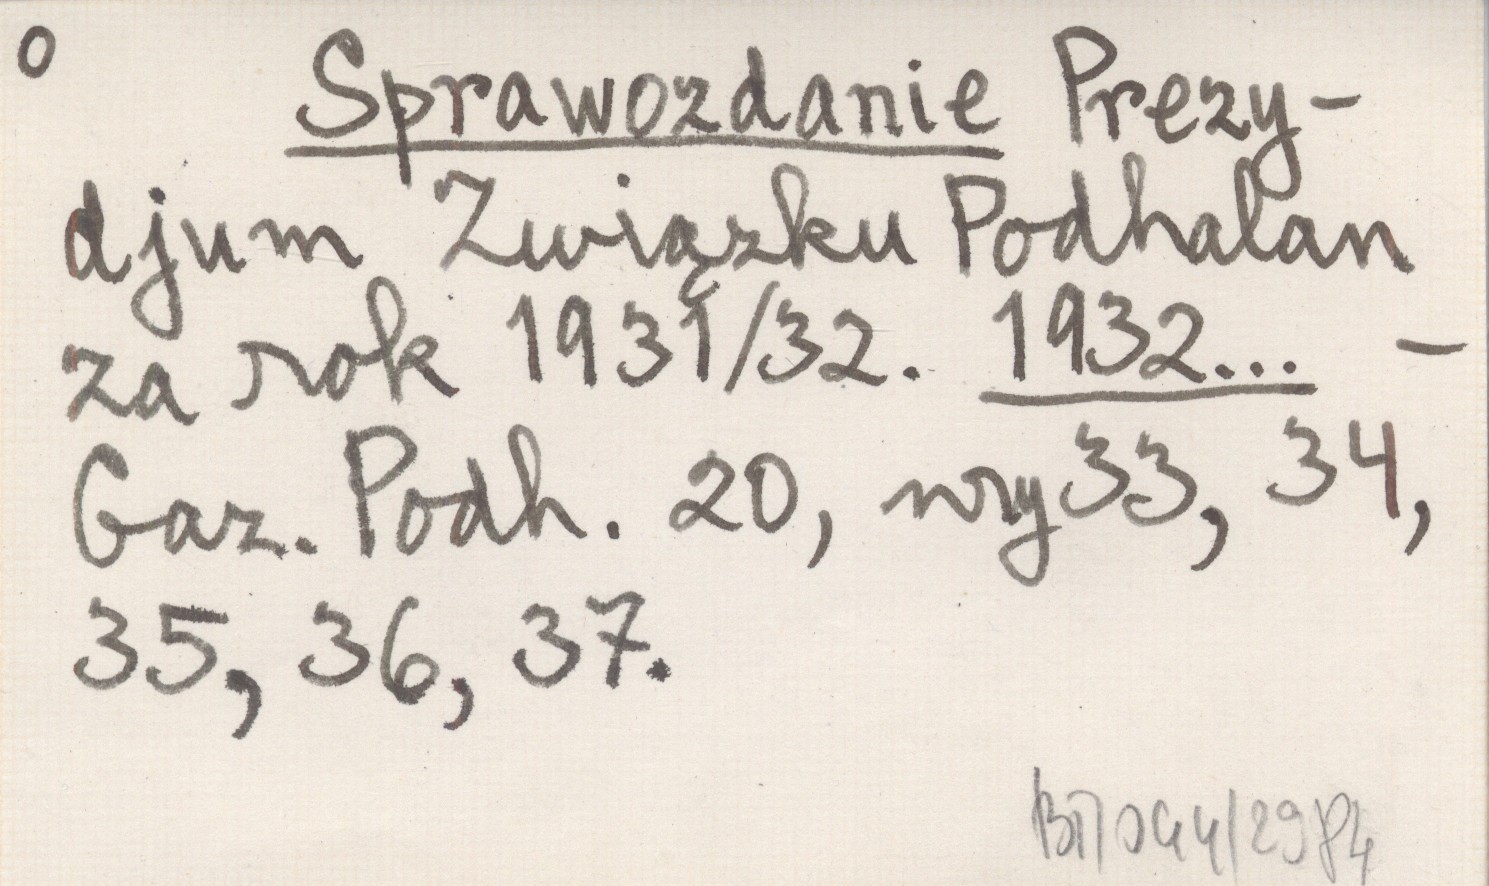 o
Sprawozdanie Prezy-
djum Związku Podhalan
za rok 1931/32. 1932... -
Gaz. Podh. 20, nry 33, 34,
35, 36, 37.